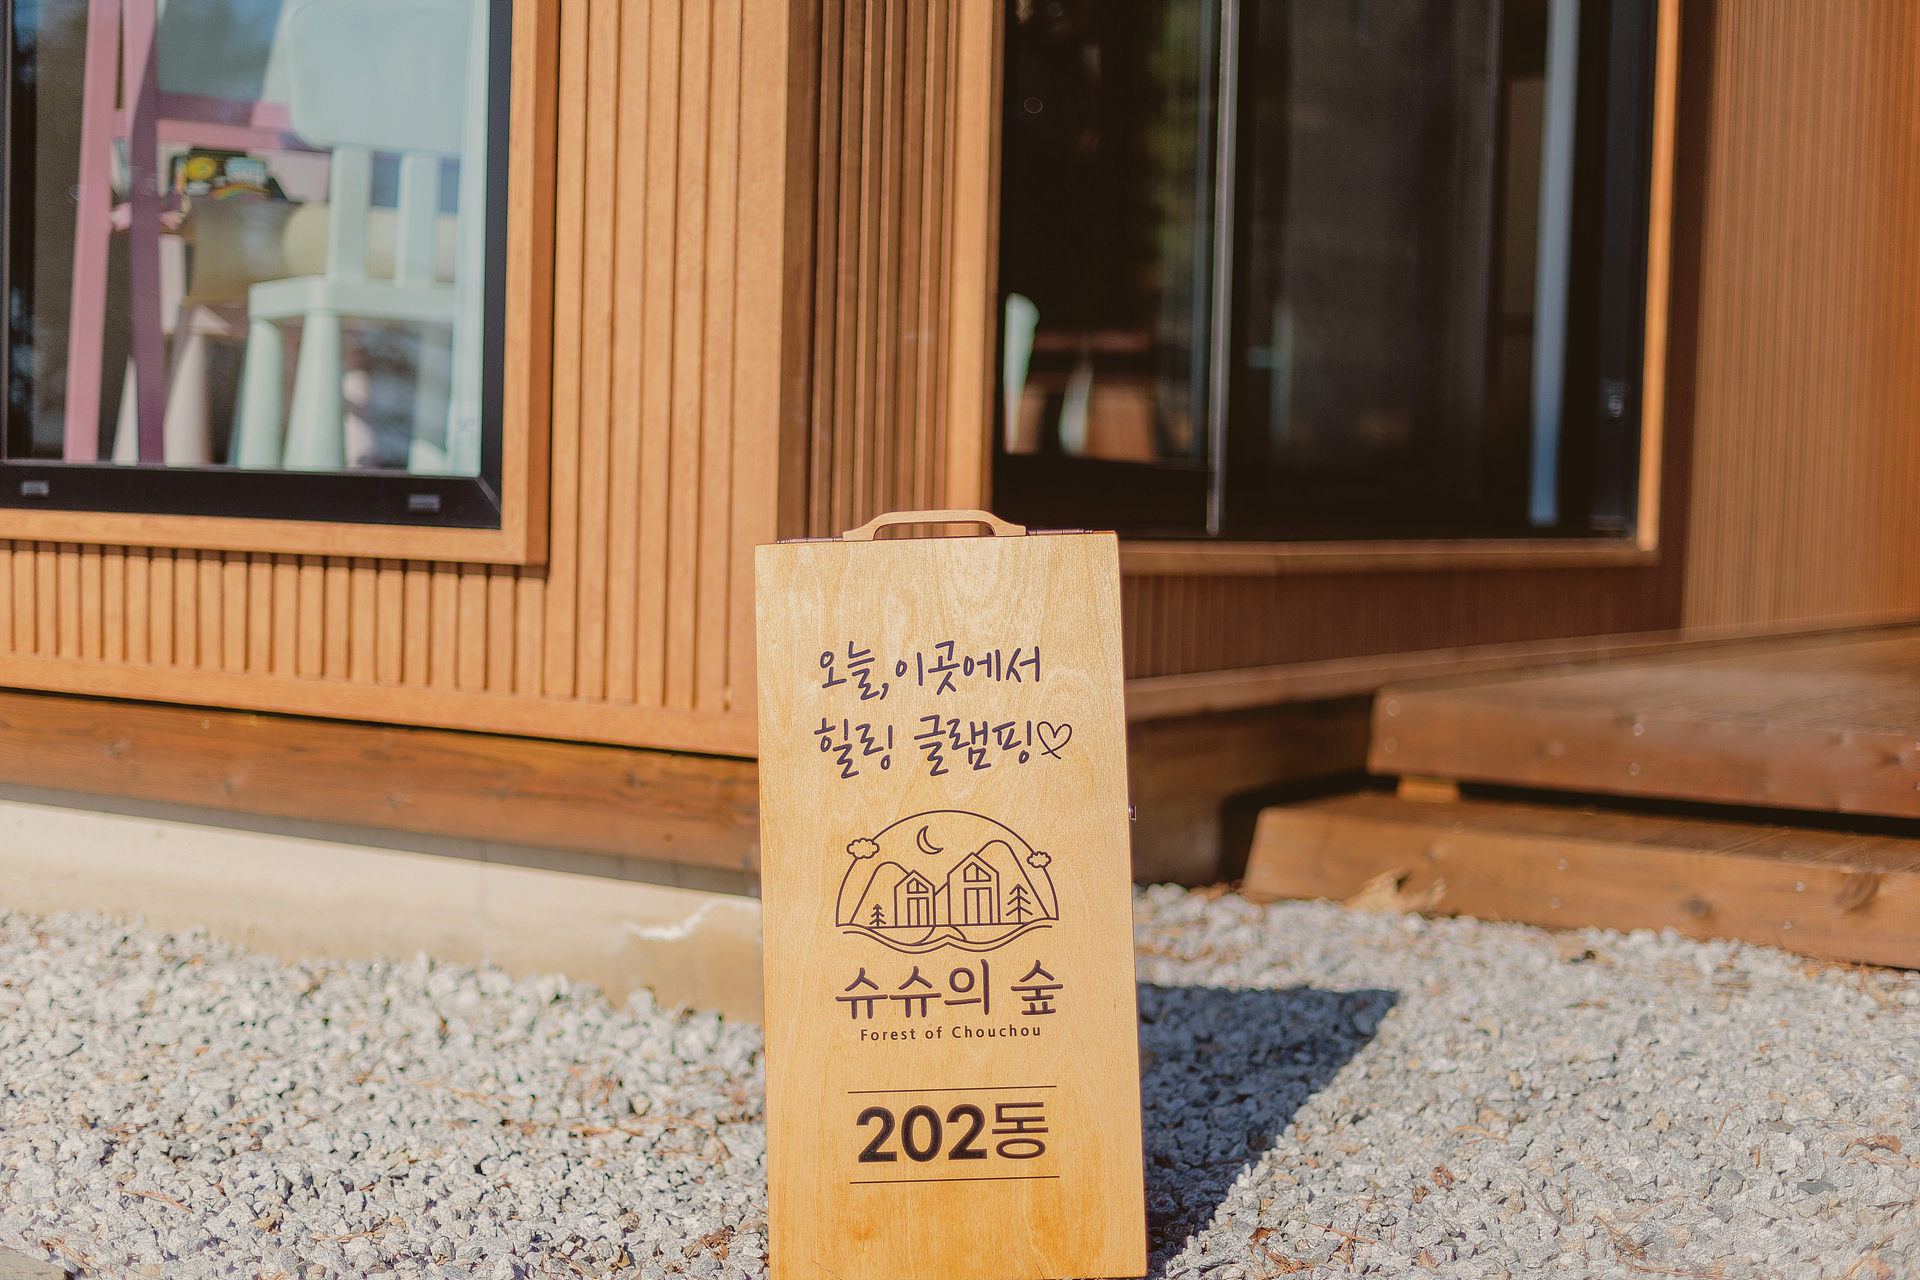 오늘,이곳에서
힐링 글램핑♡
슈슈의 숲
Forest of Chouchou
202동